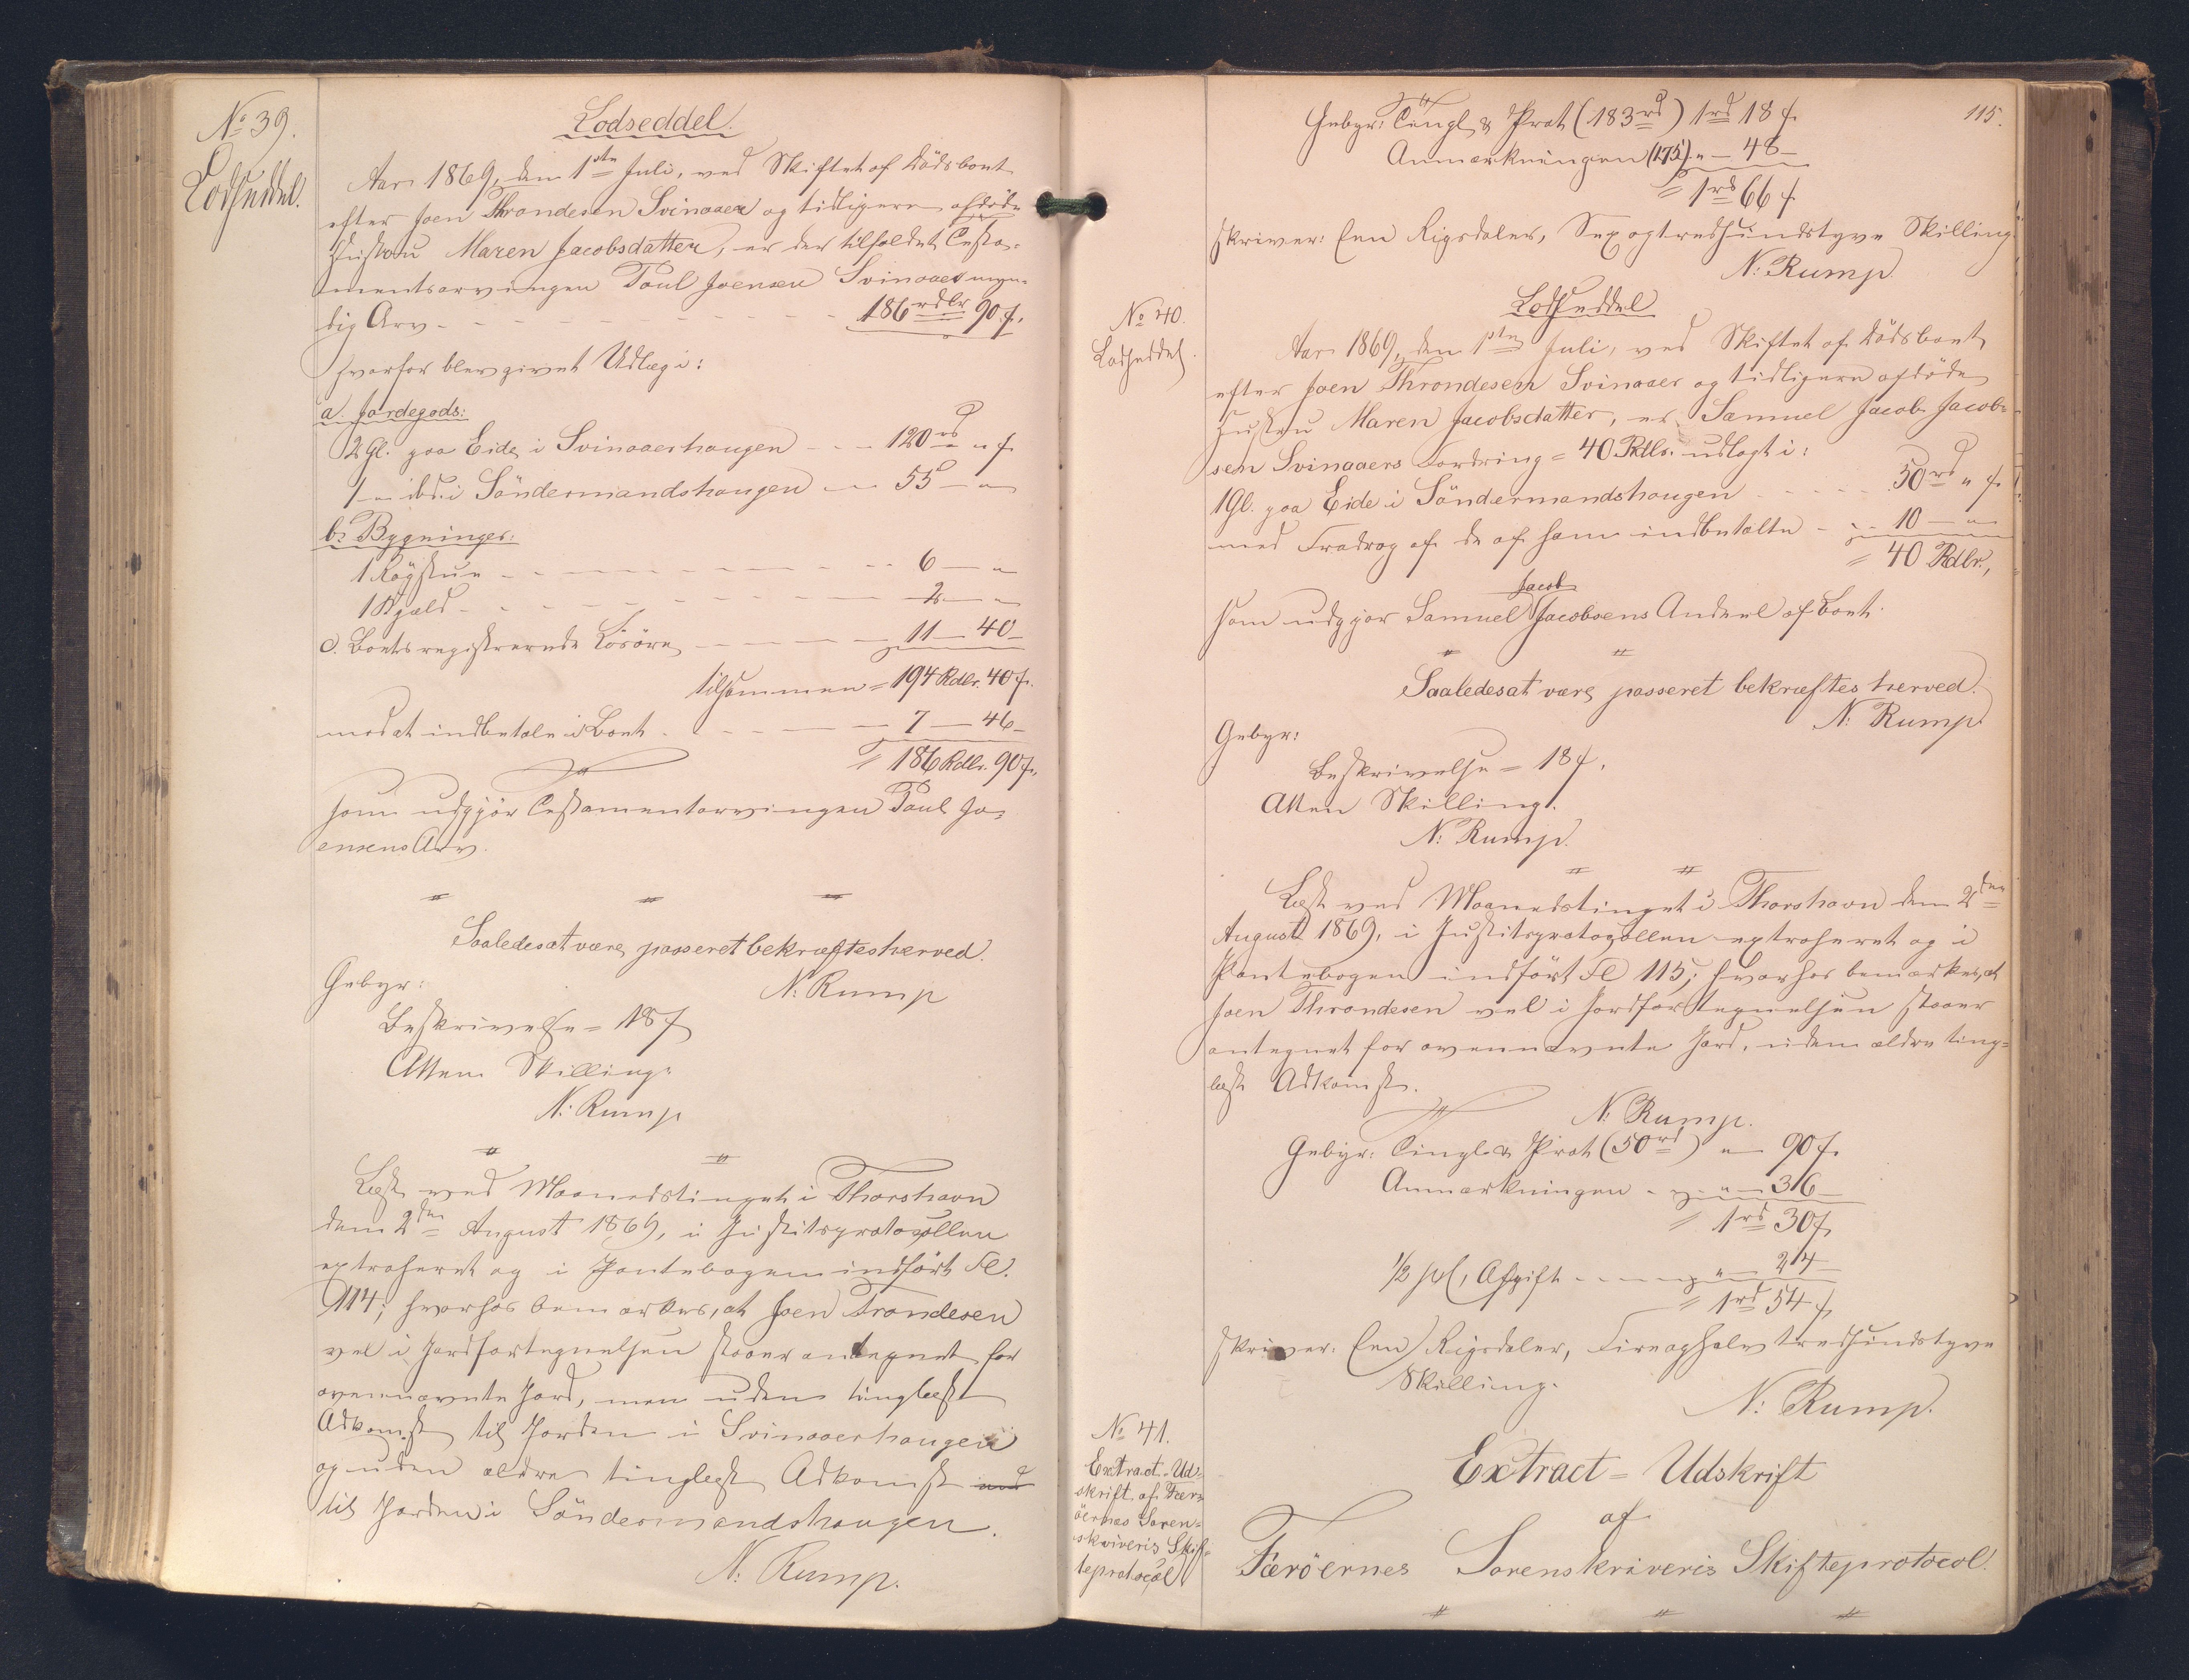 No 39.
Lodseddel.
Lodseddel.
Aar 1869, den 1ste Juli, ved Skiftet af Dödsboet
efter Joen Throndesen Svinaaer og tidligere afdöde
Hustru Maren Jacobsdatter, er der tilfaldet Testa-
mentsarvingen Poul Joensen Svinaaer myn-
dig Arv - - - 186 rdlr 90 f.
hvorfor blev givet Udlæg i:
a. Jordegods:
2 Gl. paa Eide i Svinaaerhaugen - - - 120 rd " f
1 - ibd. i Söndermandshaugen - - 55 - "
b. Bygninger:
1 Røgstue - - - 6 - "
1 Hjald - - - 2 - "
c. Boets registrerede Lösöre - - - 11 - 40 -
tilsammen = 194 Rdlr. 40 f.
mod at indbetale i Boet - - - 7 - 46 -
= 186 Rdlr. 90 f.
som udgjör Testamentarvingen Poul Jo-
ensens Arv.
Saaledes at være passeret bekræftes herved.
N: Rump
Gebyr:
Beskrivelse = 18 f
Atten Skilling.
N: Rump
Læst ved Maanedstinget i Thorshavn
den 2den August 1869, i Justitsprotocollen
extraheret og i Pantebogen indfört Fl.
114; hvorhos bemærkes, at Joen Trondesen
vel i Jordfortegnelsen staaer antegnet for
ovennævnte Jord, men uden tinglæst
Adkomst til Jorden i Svinaaerhaugen
og uden ældre tinglæst Adkomst
til Jorden i Söndermandshaugen.
N: Rump.
115.
Gebyr: Tingl. & Prot (183 rd) 1 rd 18 f.
Anmærkningen (175) " - 48 -
= 1 rd 66 f
skriver: Een Rigsdaler, Sex og tredsindstyve Skilling.
N: Rump.
No 40.
Lodseddel.
Lodseddel
Aar 1869, den 1ste Juli, ved Skiftet af Dödsboet
efter Joen Throndesen Svinaaer og tidligere afdöde
Hustru Maren Jacobsdatter, er Samuel Jacob Jacob-
sen Svinaaers Fordring = 40 Rdlr. udlagt i:
1 Gl. paa Eide i Söndermandshaugen - - - 50 rd " f.
med Fradrag af de af ham indbetalte - - - 10 - "
= 40 Rdlr.,
Jacob
som udgjör Samuel Jacobsens Andeel af Boet.
Saaledes at være passeret bekræftes herved.
N: Rump
Gebyr:
Beskrivelse = 18 f.
Atten Skilling.
N: Rump.
Læst ved Maanedstinget i Thorshavn den 2den
August 1869, i Justitsprotocollen extraheret og i
Pantebogen indfört Fl 115; hvorhos bemærkes, at
Joen Throndesen vel i Jordfortegnelsen staaer
antegnet for ovennævnte Jord, uden ældre ting-
læst Adkomst.
N: Rump.
Gebyr: Tingl. & Prot (50 rd) " - 90 f.
Anmærkningen - " - 36 -
= 1 rd 30 f
1/2 pCt. Afgift - - - " - 24 -
= 1 rd 54 f
skriver: Een Rigsdaler, Fire og halvtredsindstyve
Skilling.
N: Rump.
No 41.
Extract-Ud-
skrift af Fær-
öernes Soren-
skriveris Skif-
teprotocol
Extract-Udskrift
af
Færöernes Sorenskriveris Skifteprotocol.